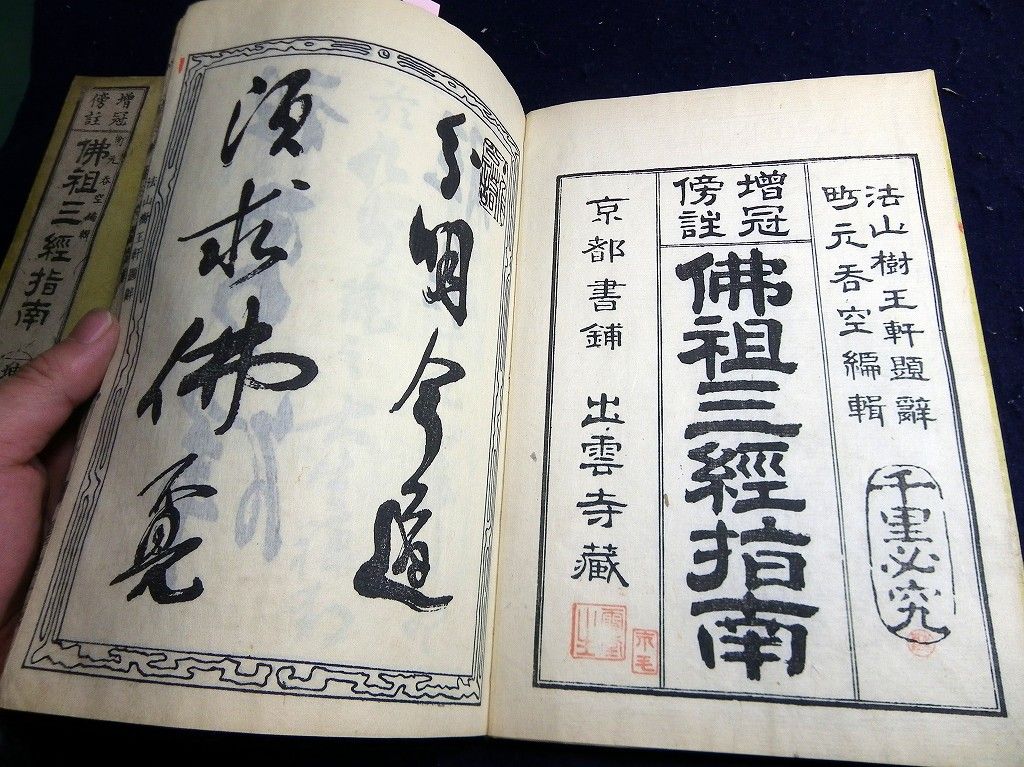 法山樹王軒題辭
町元呑空編輯
千里必究
增冠
傍註
佛祖三經指南
京都書鋪 出雲寺藏
分明今道
須求佛
增冠
傍註
町元呑空編輯
佛祖三經指南